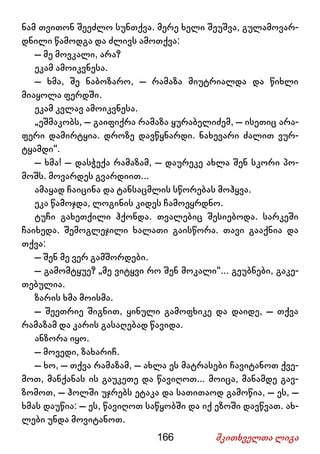 ნამ თვითონ შეეძლო სუნთქვა. მერე ხელი შეუშვა, გულამოვარ-
დნილი წამოდგა და ძლივს ამოთქვა:
— მე მოვკალი, არა?
ეკამ ამოიკვნესა.
— ხმა, შე ნაბოზარო, — რამაზა მიუტრიალდა და წიხლი
მიაყოლა ფერდში.
ეკამ კვლავ ამოიკვნესა.
„ეშმაკობს, — გაიფიქრა რამაზა ყურაბელიძემ, — ისეთიც არა-
ფერი დამირტყია. დროზე დავწყნარდი. ნახევარი ძალით ვურ-
ტყამდი“.
— ხმა! — დასჭექა რამაზამ, — დაურეკე ახლა შენ სკორი პო-
მოშს. მოვარდეს გვარდიით...
ამაყად ჩაიცინა და ტანსაცმლის სწორებას მოჰყვა.
ეკა წამოჯდა, ლოგინის კიდეს ჩამოეყრდნო.
ტუჩი გახეთქილი ჰქონდა. თვალებიც შესიებოდა. სარკეში
ჩაიხედა. შემოგლეჯილი ხალათი გაისწორა. თავი გააქნია და
თქვა:
— შენ მე ვერ გამშორდები.
— გამომტყუე? „მე ვიტყვი რო შენ მოკალი“... გეუბნები, გაკე-
თებულია.
ზარის ხმა მოისმა.
— შეეთრიე შიგნით, ყინული გამოფხიკე და დაიდე, — თქვა
რამაზამ და კარის გასაღებად წავიდა.
ანზორა იყო.
— მოვედი, ზახარიჩ.
— ხო, — თქვა რამაზამ, — ახლა ეს მატრასები ჩავიტანოთ ქვე-
მოთ, მანქანას ის გაუკეთე და წავიღოთ... მოიცა, მანამდე გავ-
ზომოთ, — ჰოლში უჯრებს ეტაკა და სათითაოდ გამოწია, — ეს, —
ხმას დაუწია: — ეს, წავიღოთ საწყობში და იქ ეზოში დავწვათ. ახ-
ლები უნდა მოვიტანოთ.
166 მკითხველთა ლიგა